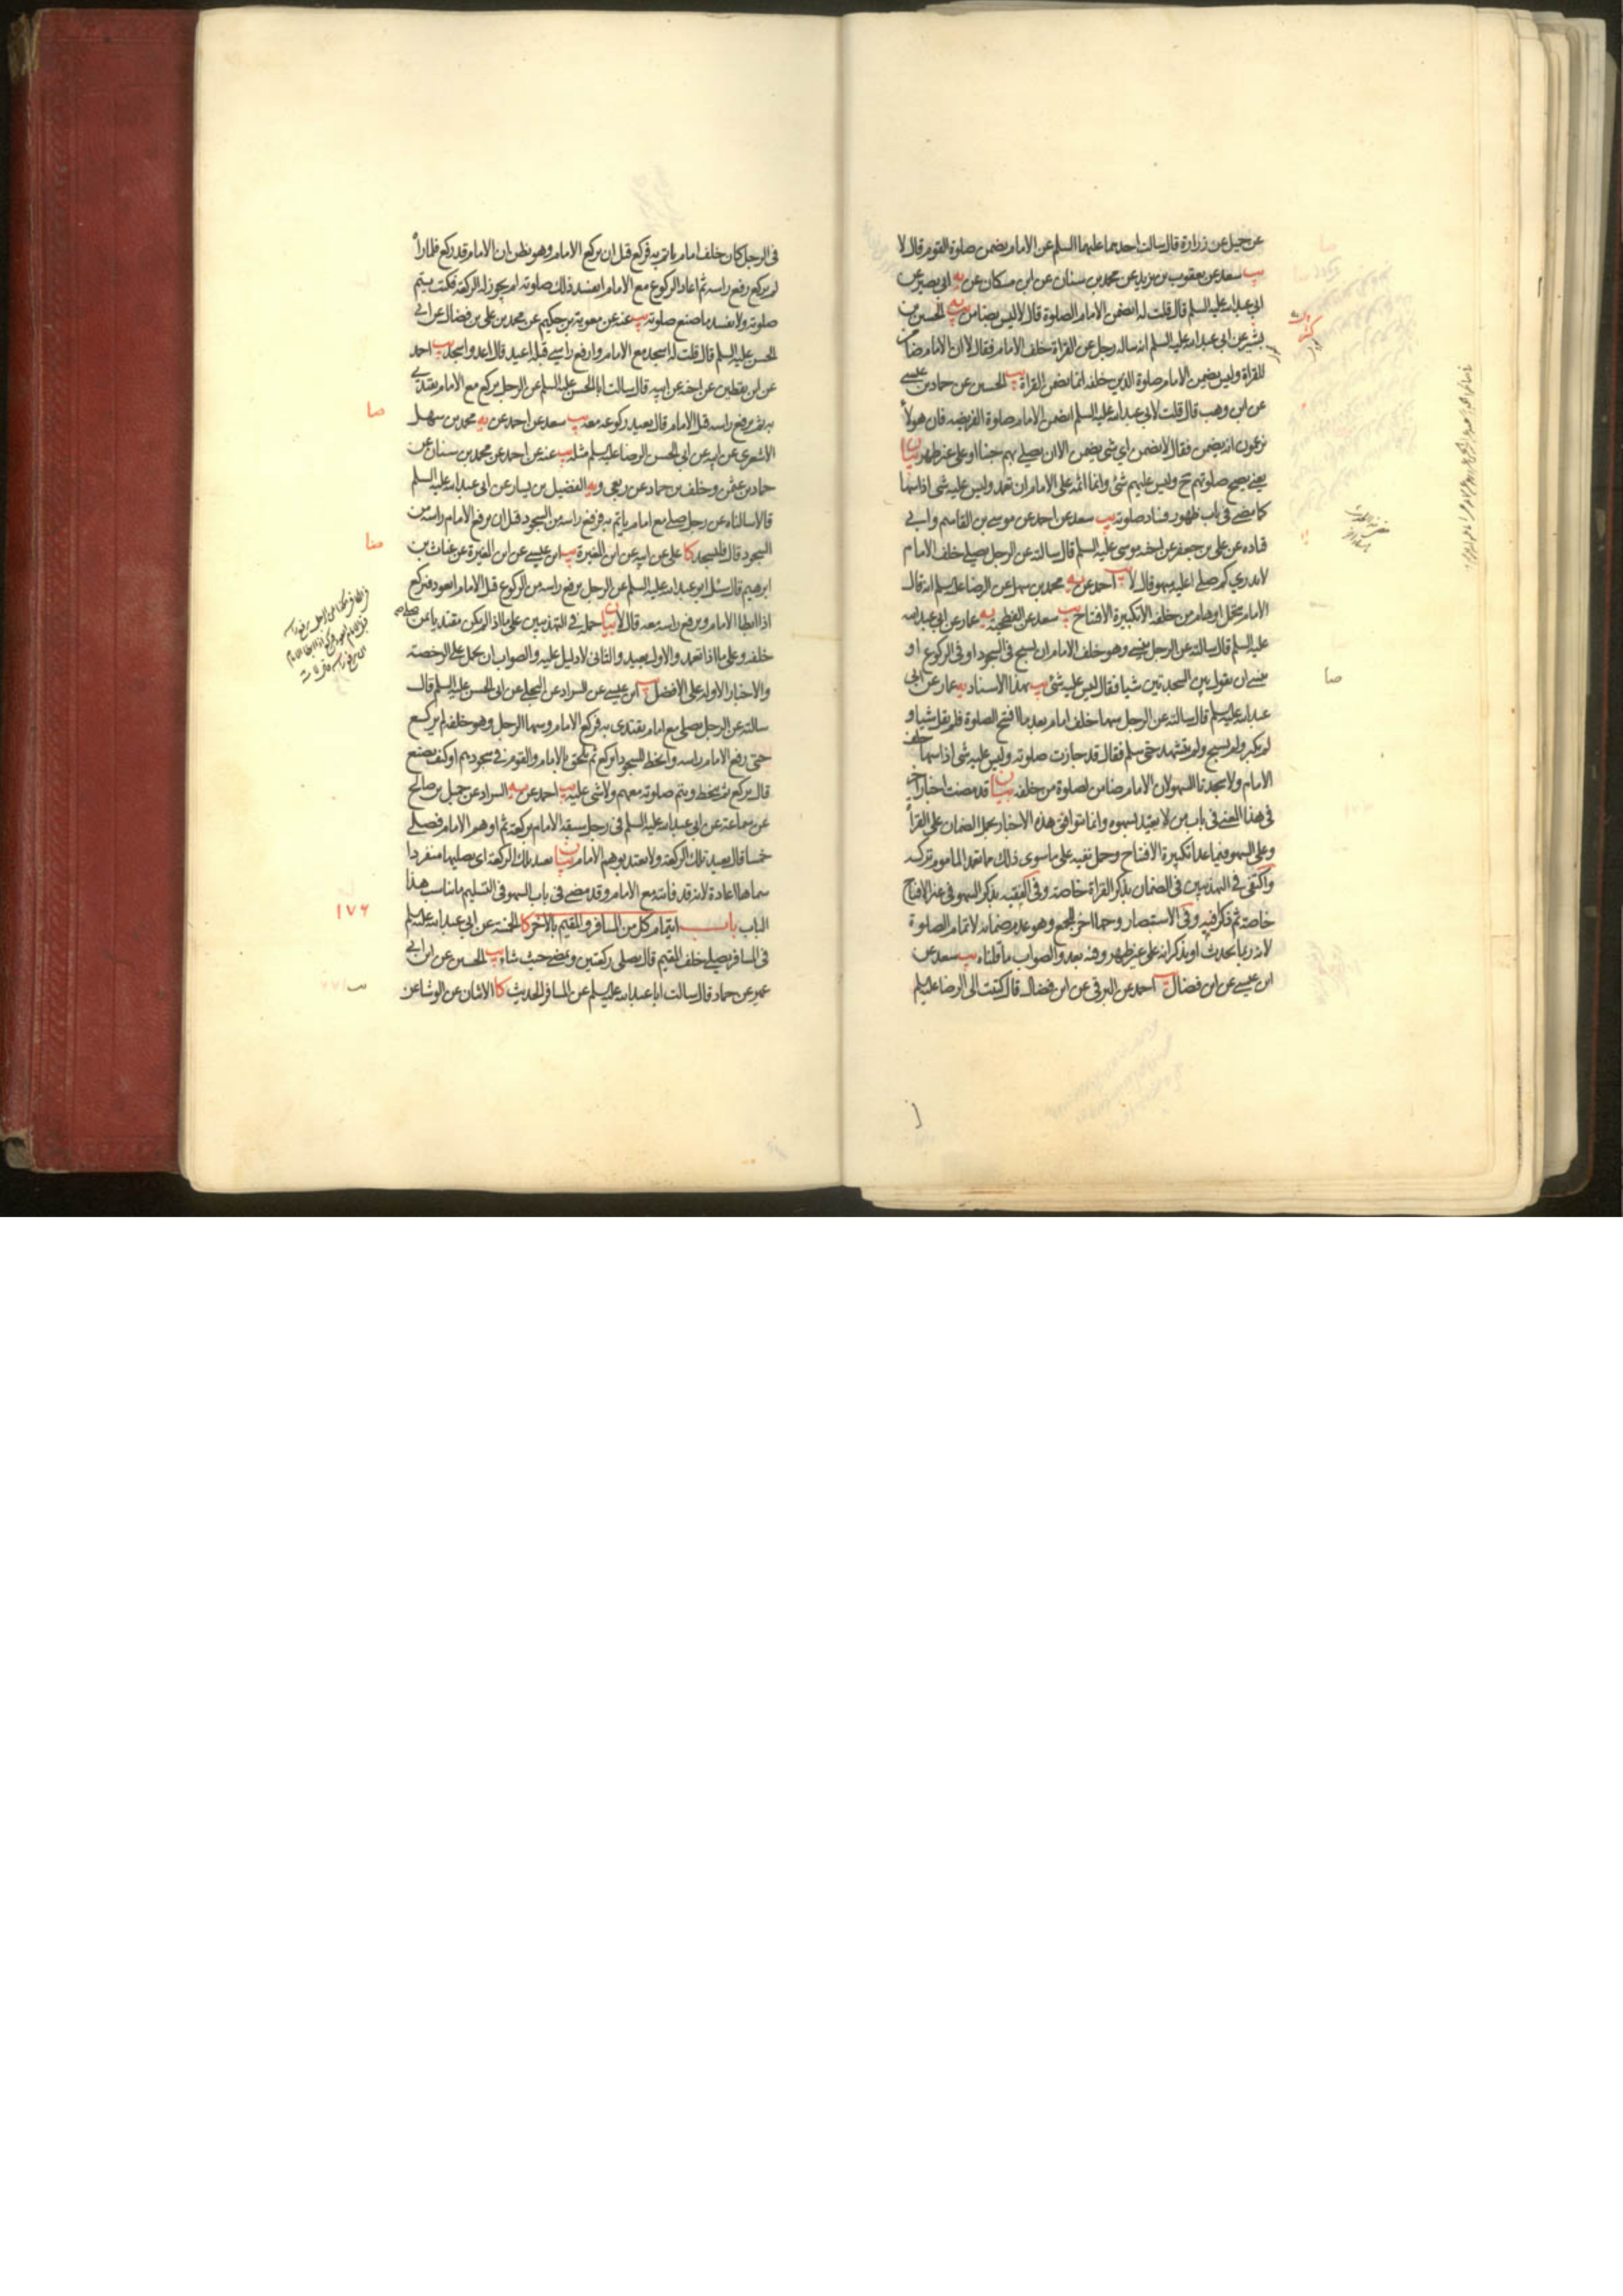 عن جميل عن زرارة قال سالت احدهما عليهما السلم عن الامام يضمن صلوة القوم قال لا
يب سعد عن يعقوب بن يزيد عن محمد بن سنان عن ابن مسكان عن يه ابى بصير عن
ابى عبدالله عليه السلم قال قلت له ايضمن الامام الصلوة قال لا ليس بضامن يب يه الحسين بن
بشير عن ابى عبدالله عليه السلم انه ساله رجل عن القراة خلف الامام فقال لا ان الامام ضامن
للقراة وليس يضمن الامام صلوة الذين خلفه انما يضمن القراة يب الحسين عن حماد بن عيسى
عن ابن وهب قال قلت لابى عبدالله عليه السلم ايضمن الامام صلوة الفريضه فان هولاء
يزعمون انه يضمن فقال لا يضمن اى شى يضمن الا ان يصلى بهم جنبا او على غير طهر بيان
يعنى يصح صلوتهم ح وليس عليهم شئ وانما اثمه على الامام ان تعمد وليس عليه شى اذا سها
كما مضى فى باب ظهور فساد صلوته يب سعد عن احمد عن موسى بن القاسم وابى
قتاده عن على بن جعفر عن اخيه موسى عليه السلم قال سالته عن الرجل يصلى خلف الامام
لا يدرى كم صلى اعليه سهو قال لا يب احمد عن يه محمد بن سهل عن الرضا عليه السلم انه قال
الامام يحمل اوهام من خلفه الا تكبيرة الافتتاح يب سعد عن الفطحية يه عمار عن ابى عبدالله
عليه السلم قال سالته عن الرجل ينسى وهو خلف الامام ان يسبح فى السجود او فى الركوع او
ينسى ان يقول بين السجدتين شيا فقال ليس عليه شئ يب بهذا الاسناد يه عمار عن ابى
عبدالله عليه السلم قال سالته عن الرجل سها خلف امام بعد ما افتتح الصلوة فلم يقل شيا و
لم يكبر ولم يسبح ولم يتشهد حتى سلم فقال قد جازت صلوته وليس عليه شى اذا سها خلف
الامام ولا سجدتا السهو لان الامام ضامن لصلوة من خلفه بيان قد مضت اخبار اخر
فى هذا المعنى فى باب من لا يعتد بسهوه وانما تتوافق هذه الاخبار بحمل الضمان على القراة
وعلى السهو فيما عدا تكبيرة الافتتاح وحمل نفيه على ما سوى ذلك مما تعمد الماموم تركه
واكتفى فى التهذيبين فى الضمان بذكر القراة خاصة وفى الفقيه بذكر السهو فى غير الافتتاح
خاصة ثم ذكر فيه وفى الاستبصار وجها اخر للجمع وهو عدم ضمانه لاتمام الصلوة
لانه ربما يحدث او يذكر انه على غير طهر وفيه بعد والصواب ما قلناه يب سعد عن
ابن عيسى عن ابن فضال يب احمد عن البرقى عن ابن فضال قال كتبت الى الرضا عليه السلم
صا
فى الرجل كان خلف امام ياتم به فركع قبل ان يركع الامام وهو يظن ان الامام قد ركع فلما راه
لم يركع رفع راسه ثم اعاد الركوع مع الامام ايفسد ذلك صلوته ام يجوز له الركعة فكتب يتم
صلوته ولا يفسد ما صنع صلوته يب عنه عن معوية بن حكيم عن محمد بن على بن فضال عن ابى
الحسن عليه السلم قال قلت له اسجد مع الامام وارفع راسى قبله اعيد قال اعد واسجد يب احمد
عن ابن يقطين عن اخيه عن ابيه قال سالت ابا الحسن عليه السلم عن الرجل يركع مع الامام يقتدى
به ثم يرفع راسه قبل الامام قال يعيد ركوعه معه يب سعد عن احمد عن يه محمد بن سهل
الاشعرى عن ابيه عن ابى الحسن الرضا عليه السلم مثله يب عنه عن احمد عن محمد بن سنان عن
حماد بن عثمن وخلف بن حماد عن ربعى و يه الفضيل بن يسار عن ابى عبدالله عليه السلم
قالا سالناه عن رجل صلى مع امام ياتم به فرفع راسه من السجود قبل ان يرفع الامام راسه من
السجود قال فليسجد كا على عن ابيه عن ابن المغيرة يب ابن عيسى عن ابن المغيرة عن غياث بن
ابرهيم قال سئل ابو عبدالله عليه السلم عن الرجل يرفع راسه من الركوع قبل الامام ايعود فيركع
اذا ابطا الامام ويرفع راسه معه قال لا بيان حمله فى التهذيبين على ما اذا لم يكن مقتديا بمن صلى
خلفه وعلى ما اذا تعمد والاول بعيد والثانى لا دليل عليه والصواب ان يحمل على الرخصة
والاخبار الاولة على الافضل يب ابن عيسى عن السراد عن البجلى عن ابى الحسن عليه السلم قال
سالته عن الرجل يصلى مع امام يقتدى به فركع الامام وسها الرجل وهو خلفه لم يركع
حتى رفع الامام راسه وانحط للسجود ايركع ثم يلحق بالامام والقوم فى سجودهم او كيف يصنع
قال يركع ثم ينحط ويتم صلوته معهم ولا شى عليه يب احمد عن يه السراد عن جميل بن صالح
عن سماعة عن ابى عبدالله عليه السلم فى رجل سبقه الامام بركعة ثم اوهم الامام فصلى
خمسا قال يعيد تلك الركعة ولا يعتد بوهم الامام بيان يعيد تلك الركعة اى يصليها منفردا
سماها اعادة لانه قد فاتته مع الامام وقد مضى فى باب السهو فى التسليم ما يناسب هذا
الباب باب ايتمام كل من المسافر والمقيم بالاخر كا الخمسة عن ابى عبدالله عليه السلم
فى المسافر يصلى خلف المقيم قال يصلى ركعتين ويمضى حيث شاء يب الحسين عن ابن ابى
عمير عن حماد قال سالت ابا عبدالله عليه السلم عن المسافر الحديث كا الاثنان عن الوشا عن
صا
صا
١٧٦